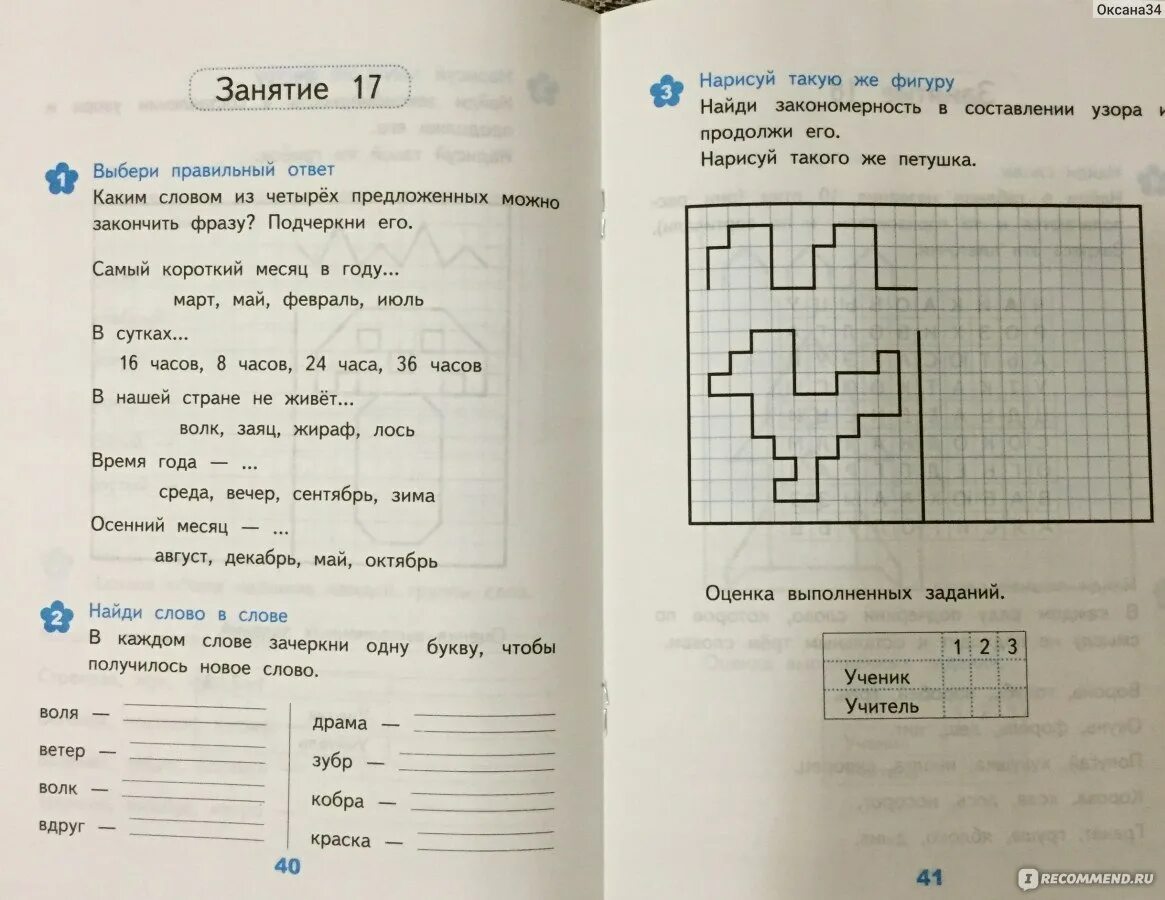 Оксана34
Занятие 17
1 Выбери правильный ответ
Каким словом из четырёх предложенных можно
закончить фразу? Подчеркни его.
Самый короткий месяц в году...
март, май, февраль, июль
В сутках...
16 часов, 8 часов, 24 часа, 36 часов
В нашей стране не живёт...
волк, заяц, жираф, лось
Время года — ...
среда, вечер, сентябрь, зима
Осенний месяц — ...
август, декабрь, май, октябрь
2 Найди слово в слове
В каждом слове зачеркни одну букву, чтобы
получилось новое слово.
воля —
ветер —
волк —
вдруг —
драма —
зубр —
кобра —
краска —
40
3 Нарисуй такую же фигуру
Найди закономерность в составлении узора и
продолжи его.
Нарисуй такого же петушка.
Оценка выполненных заданий.
1 2 3
Ученик
Учитель
41
IRECOMMEND.RU